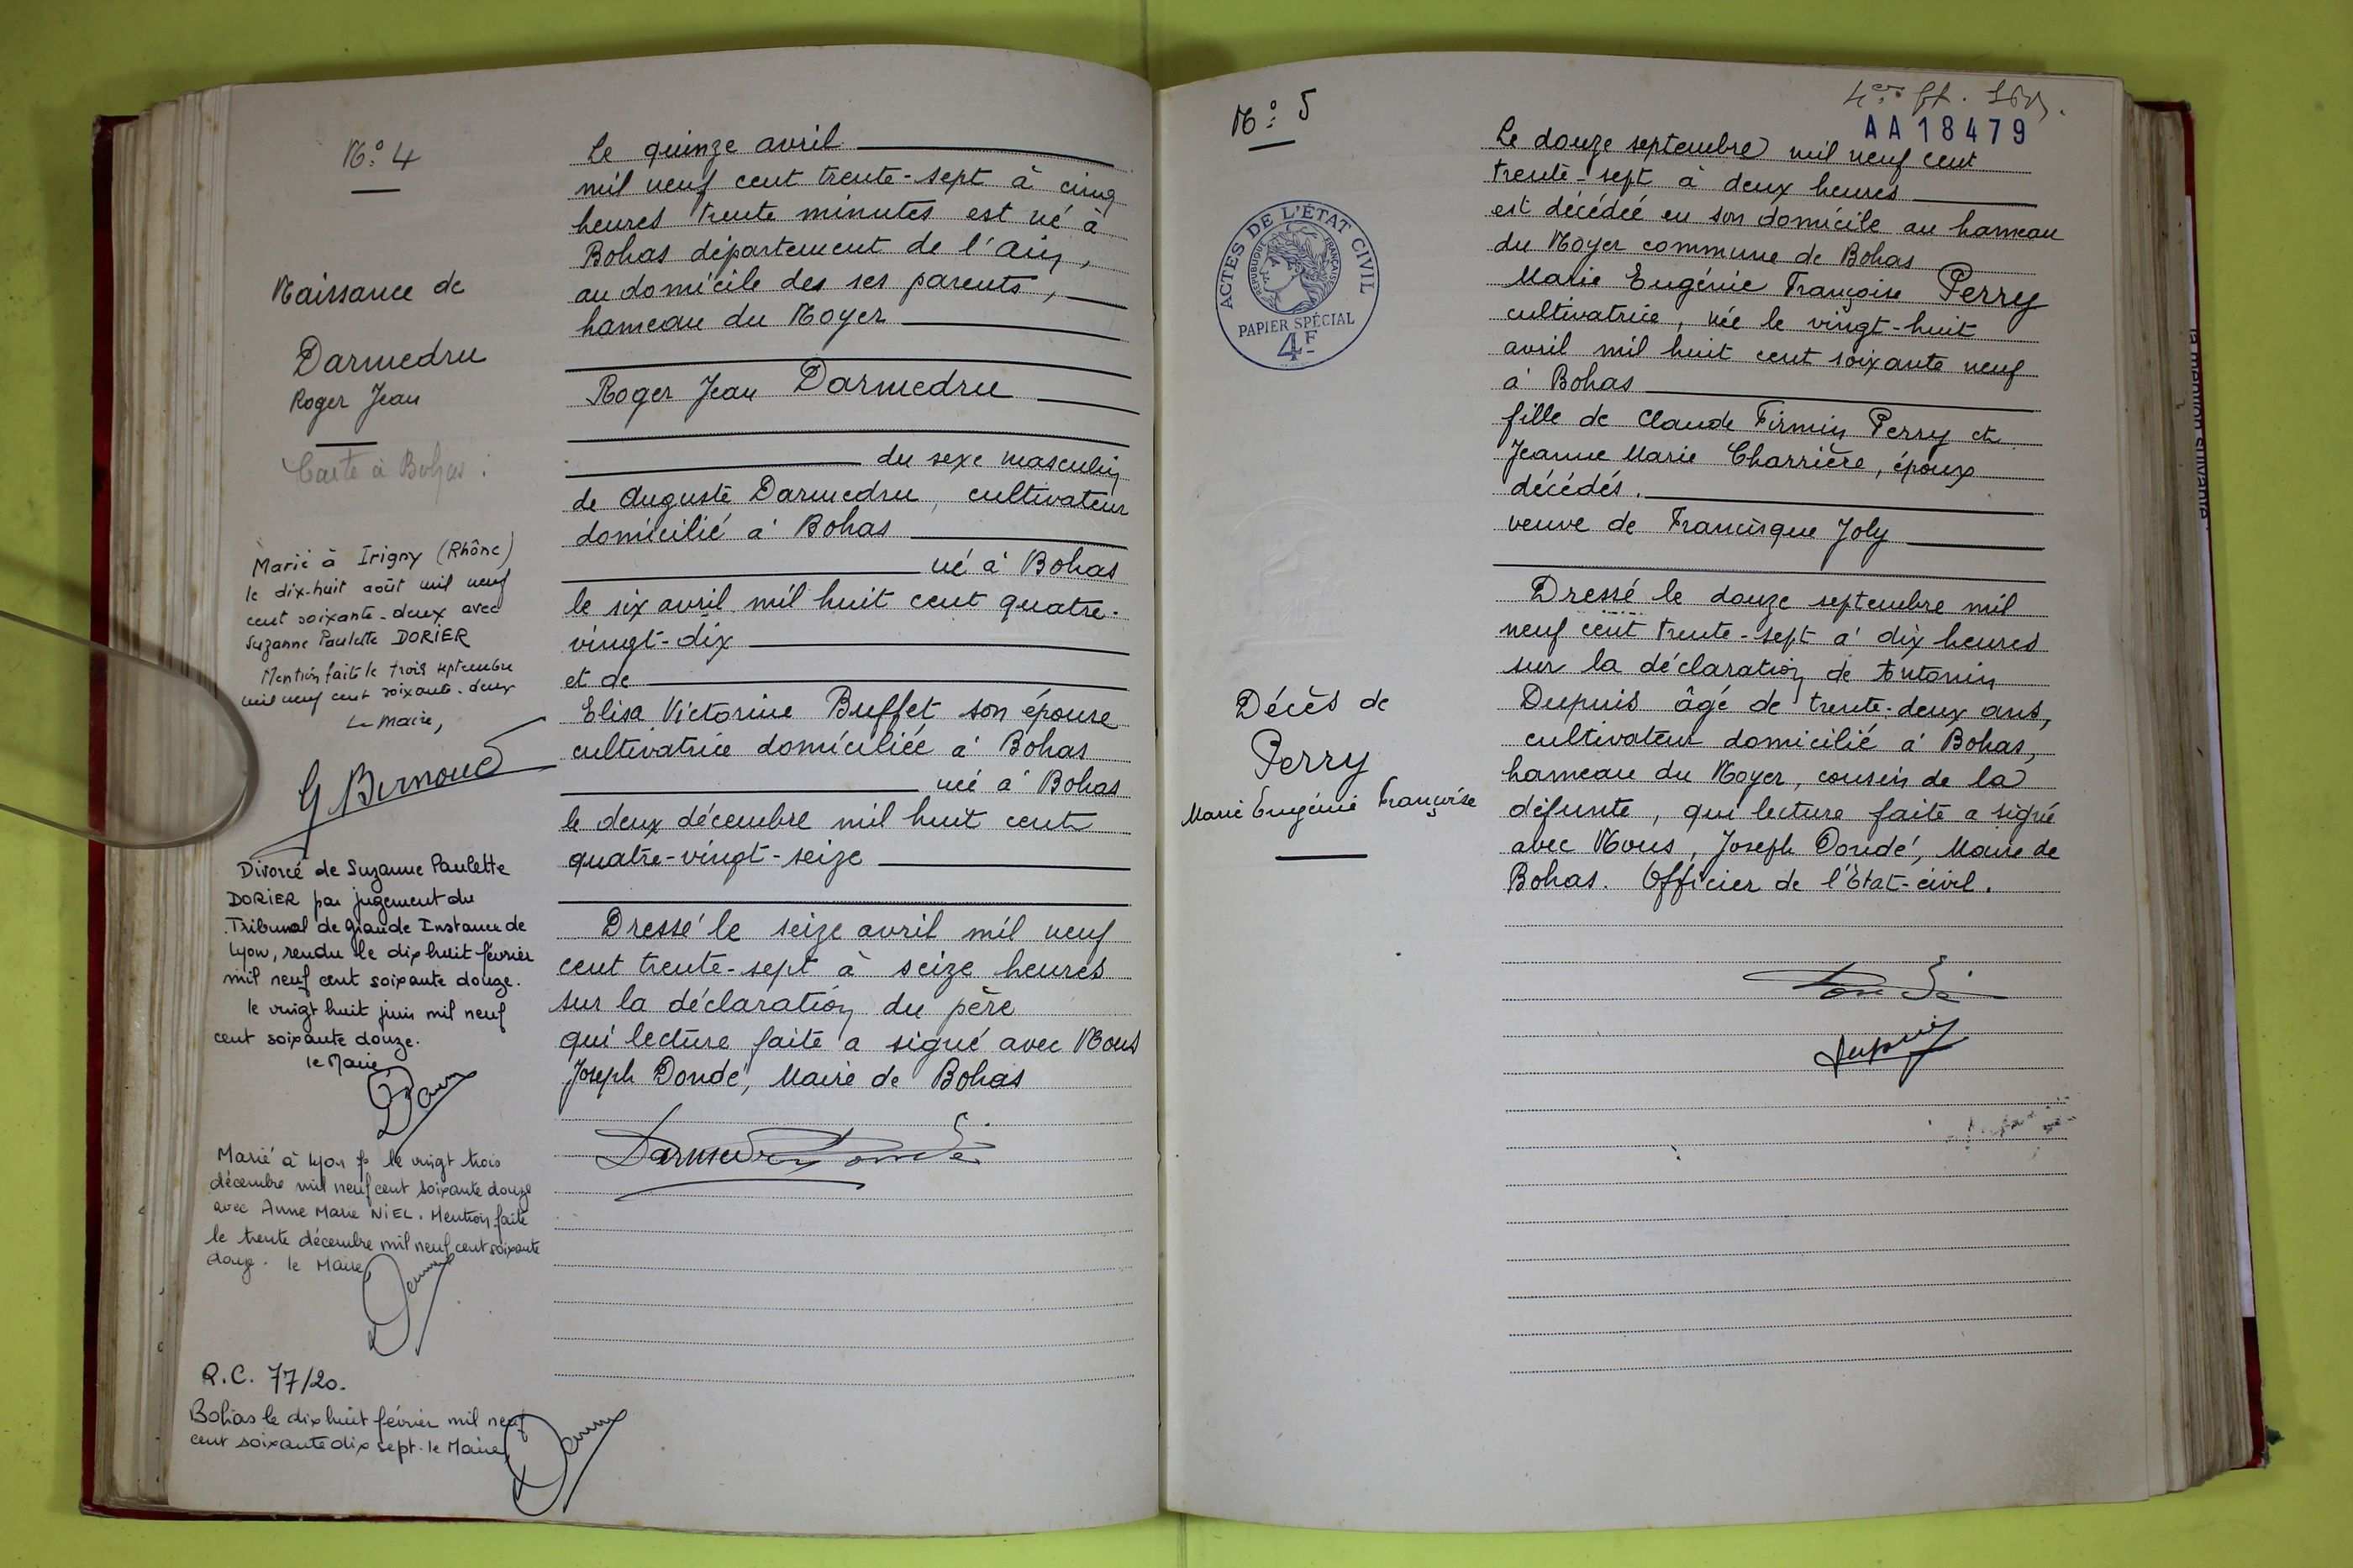 N° 4
Naissance de
Darmedru
Roger Jean
Carte à Bohas.
Marié à Irigny (Rhône)
le dix-huit août mil neuf
cent soixante-deux avec
Suzanne Paulette DORIER
Mention faite le trois septembre
mil neuf cent soixante-deux
Le Maire,
G Bernoud
Divorcé de Suzanne Paulette
DORIER par jugement du
Tribunal de Grande Instance de
Lyon, rendu le dix huit février
mil neuf cent soixante douze.
le vingt huit juin mil neuf
cent soixante douze.
le Maire
Marié à Lyon le vingt trois
décembre mil neuf cent soixante douze
avec Anne Marie NIEL. Mention faite
le trente décembre mil neuf cent soixante
douze. le Maire
R.C. 77/20.
Bohas le dix huit février mil neuf
cent soixante dix sept. le Maire,
Le quinze avril
mil neuf cent trente-sept à cinq
heures trente minutes est né à
Bohas département de l'Ain,
au domicile des ses parents,
hameau du Noyer
Roger Jean Darmedru
du sexe masculin
de Auguste Darmedru, cultivateur
domicilié à Bohas
né à Bohas
le six avril mil huit cent quatre-
vingt-dix
et de
Elisa Victorine Buffet son épouse
cultivatrice domiciliée à Bohas
né à Bohas
le deux décembre mil huit cent
quatre-vingt-seize
Dressé le seize avril mil neuf
cent trente-sept à seize heures
sur la déclaration du père
qui lecture faite a signé avec Nous
Joseph Dondé, Maire de Bohas
Darmedru Dondé
N° 5
ACTES DE L'ÉTAT CIVIL
RÉPUBLIQUE FRANÇAISE
PAPIER SPÉCIAL
4F
Décès de
Perry
Marie Eugénie Françoise
AA18479
Le douze septembre mil neuf cent
trente-sept à deux heures
est décédée en son domicile au hameau
du Noyer commune de Bohas
Marie Eugénie Françoise Perry
cultivatrice, née le vingt-huit
avril mil huit cent soixante neuf
à Bohas
fille de Claude Firmin Perry et
Jeanne Marie Charrière, époux
décédés.
veuve de Francisque Joly
Dressé le douze septembre mil
neuf cent trente-sept à dix heures
sur la déclaration de Antonin
Dupuis âgé de trente-deux ans,
cultivateur domicilié à Bohas,
hameau du Noyer, cousin de la
défunte, qui lecture faite a signé
avec Nous, Joseph Dondé, Maire de
Bohas. Officier de l'Etat-civil.
Dondé
Dupuis